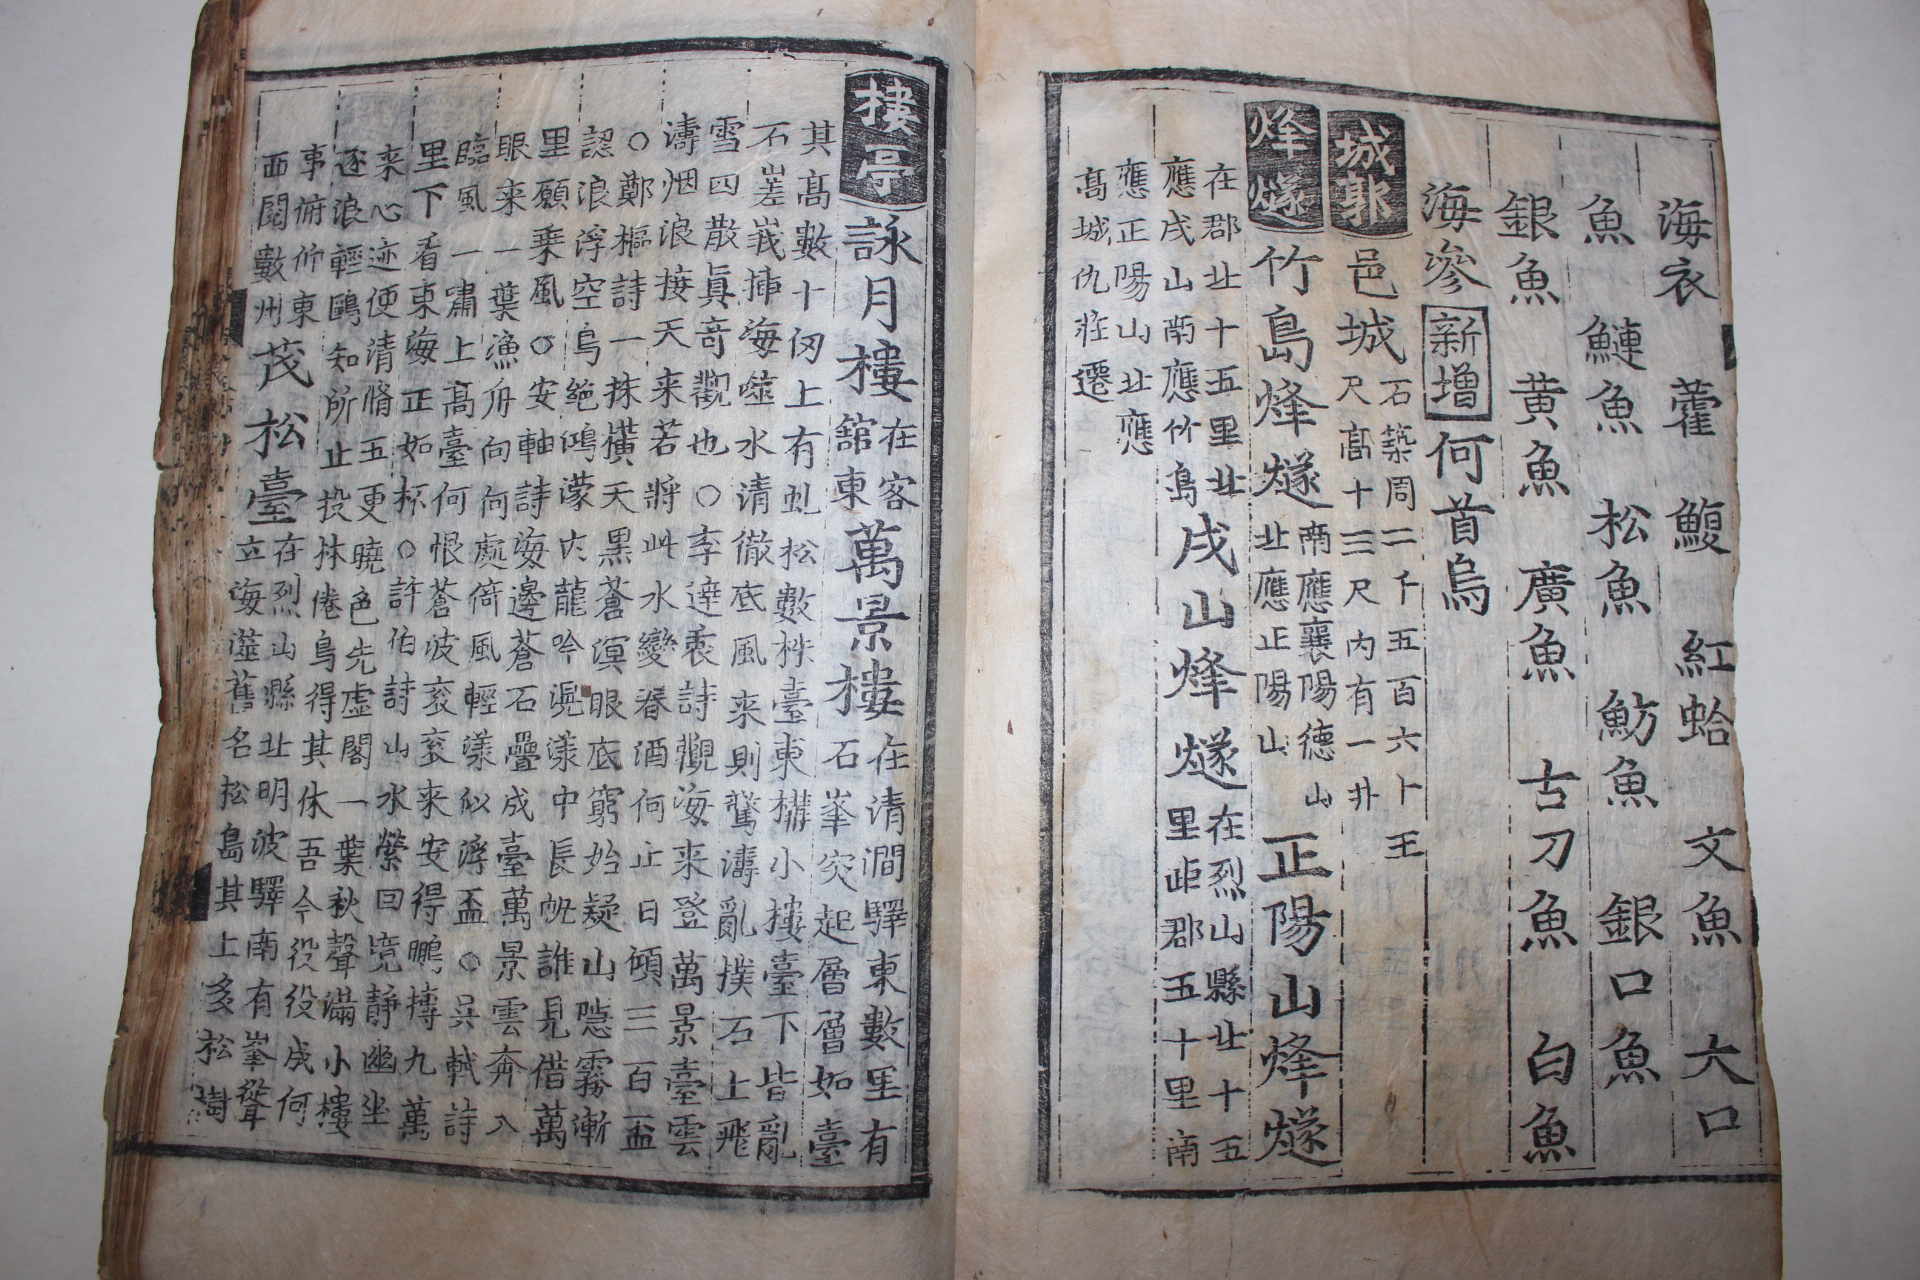 海衣 藿 鰒 紅蛤 文魚 大口
魚 鰱魚 松魚 魴魚 銀口魚
銀魚 黄魚 廣魚 古刀魚 白魚
海參 新增 何首烏
城郭 邑城 石築周二千五百六卜王
尺高十三尺内有一井
烽燧 竹島烽燧 南應襄陽德山
北應正陽山 正陽山烽燧
在郡北十五里北
應戌山南應竹島 戌山烽燧 在烈山縣北十五
里距郡五十里南
應正陽山北應
高城仇莊遷
樓亭 詠月樓 在客
館東 萬景樓 在清澗驛東數里有
石峯突起層層如臺
其高數十仞上有虬松數株臺東構小樓臺下皆亂
石嵳峩揷海噬水清徹底風来則驚濤亂撲石上飛
雪四散眞竒觀也○李達衷詩觀海来登萬景臺雲
濤烟浪接天来若將此水變春酒何止日傾三百盃
○鄭樞詩一抹横天黑蒼溟眼底窮始疑山隱霧漸
認浪浮空鳥絶鴻濛内龍吟滉漾中長帆誰見借萬
里願乗風○安軸詩海邊蒼石疊成臺萬景雲奔入
眼来一葉漁舟向何處倚風輕漾似浮盃○吳軾詩
臨風一嘯上高臺何恨蒼波衮衮来安得鵬摶九萬
里下看東海正如杯○許伯詩山水縈回境靜幽坐
来心迹便清脩五更曉色先虛閣一葉秋聲滿小樓
逐浪輕鷗知所止投林倦鳥得其休吾今役役成何
事俯仰東
西閱數州 茂松臺 在烈山縣北明波驛南有峯聳
立海澨舊名松島其上多松樹